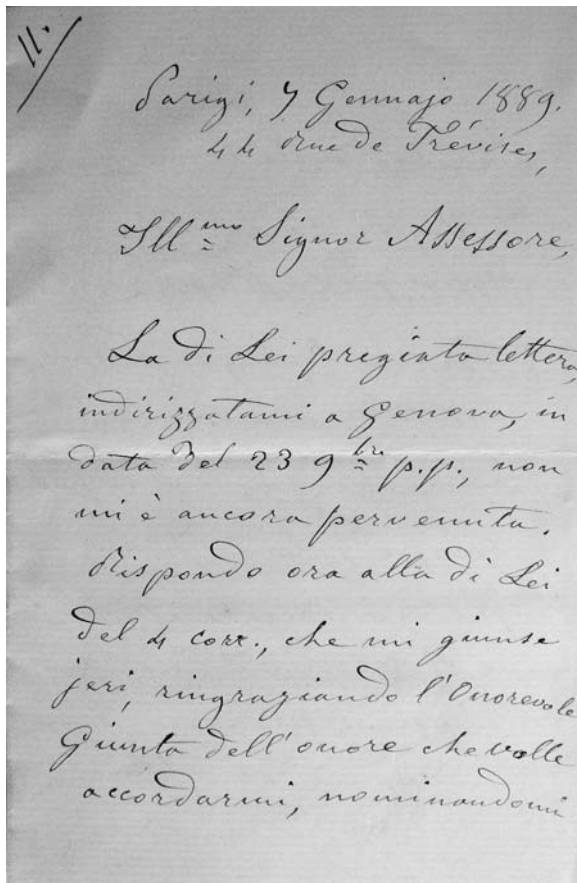 11.
Parigi, 7 Gennajo 1889.
44 Rue de Trévise,
Ill.mo Signor Assessore,
La di Lei pregiata lettera,
indirizzatami a Genova, in
data del 23 9bre p.p., non
mi è ancora pervenuta.
Rispondo ora alla di Lei
del 4 corr., che mi giunse
jeri, ringraziando l'Onorevole
Giunta dell'onore che volle
accordarmi, nominandomi